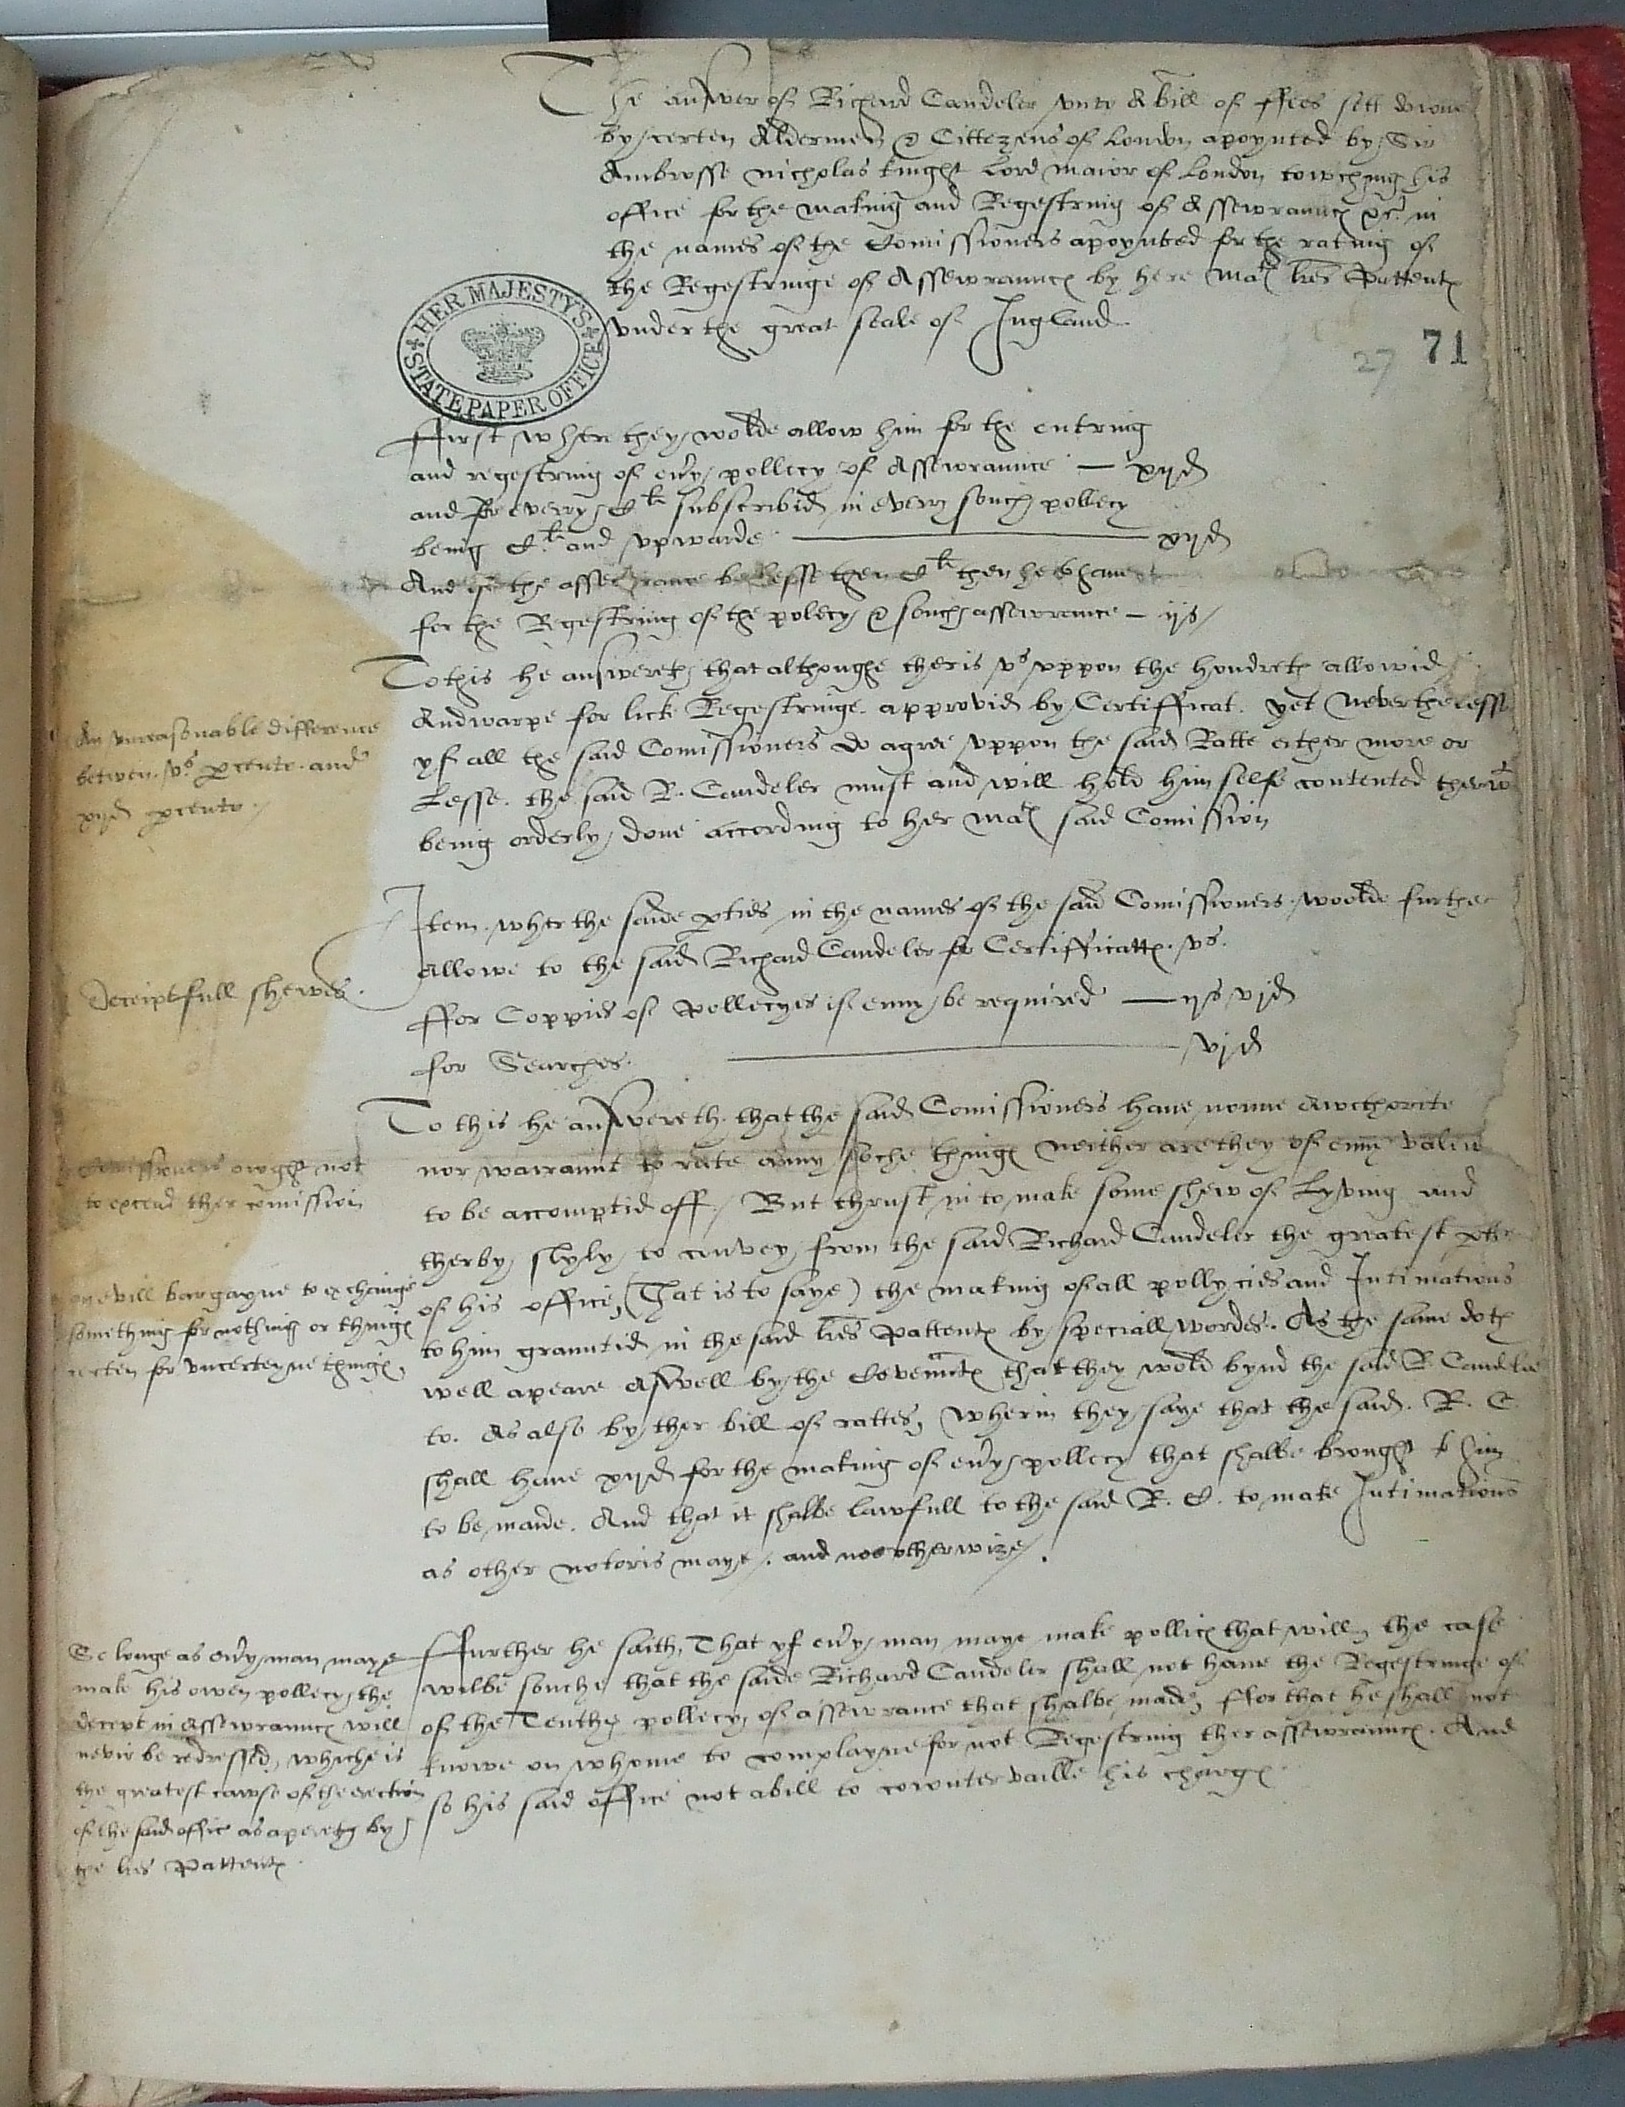 The answer of Richard Candeler vnto A bill of ffees sett downe
by certen Aldermen & Cittezens of London apoynted by Sir
Ambrosse nicholas knight Lord maior of London towching his
office for the making and Regestring of Assewraunc &c in
the names of the Comissioners apoynted for the rating of
the Regestringe of Assewraunc by here Matˢ lres Pattent
vnder the great seale of Ingland
HER MAJESTY'S
STATE PAPER OFFICE
27 71
ffirst wher they wolde allow him for the entring
and regestring of euy pollecy of Assewraunce — xijd
and for every Cˡⁱ subscribid in every souch pollecy
being Cˡⁱ and vpwarde — xijd
And if the assewrance be lesse then Cˡⁱ then he to haue
for the Regestring of the polecy & souch assewrance – ijs
To this he answereth that althoughe ther is vˢ vppon the hundreth allowid
Andwarpe for licke Regestringe approvid by Certifficat. yet neverthelesse
yf all the said Comissioners do agree vppon the said Ratte either more or
Lesse. the said R. Candeler must and will hold him selfe contented therwᵗ
being orderly done according to her Matˢ said Comission
An vnreasonable difference
betwen. vˢ pcento. and
xijd pcento.
Item. wher the saide pties in the names of the said Comissioners woolde further
Allowe to the said Richard Candeler for Certifficatt. vs.
ffor Coppies of Pollecyes if enny be required — ijs vjd
for Searches. — vjd
Deceiptfull shewes.
To this he answereth. that the said Comissioners haue nonne Awcthorite
nor warrannt to rate anny soche thing neither are they of enny valew
to be accomptid off. But thrust in to make some shew of Lyving and
therby slyly to convey from the said Richard Candeler the greatest pte
of his office, (That is to saye) the making of all pollycies and Intimations
to him grauntid in the said lres Pattent by speciall wordes. As the same doth
well apeare Aswell by the Covennt that they wold bynd the said R. Candeler
to. As also by ther bill of rattes, wherin they saye that the said. R. C.
shall haue xijd for the making of euy pollecy that shalbe brought to him
to be made. And that it shalbe lawfull to the said R. C. to make Intimations
as other notoris maye. and no otherwize.
Comissioners owght not
to exceed ther comission
one vill bargayne to exchainge
something for nothing or thing
certen for vncerteyne thing.
ffurther he saith, That yf euy man maye make pollic that will, the case
wilbe souche that the saide Richard Candeler shall not haue the Regestringe of
of the Tenthe pollecy of assewrance that shalbe made, ffor that he shall not
knowe on whome to complayne for not Regestring ther assewraunc. And
so his said office not abill to cownter vaille his charg.
So longe as euy man maye
make his owen pollecy the
decept in Assewraunc will
nevir be redressed, whiche is
the greatest cawse of the erection
of the said office as apereth by
the lres Pattent.